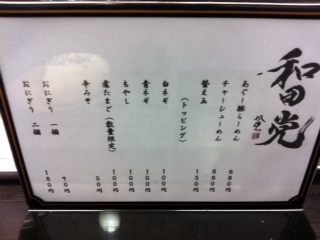 和田党
あぐー豚らーめん 680
チャーシューめん 880
替え玉 150
(トッピング)
白ネギ 100
青ネギ 100
もやし 100
煮たまご(数量限定) 100
辛みそ 50
おにぎり 一個 90
おにぎり 二個 180